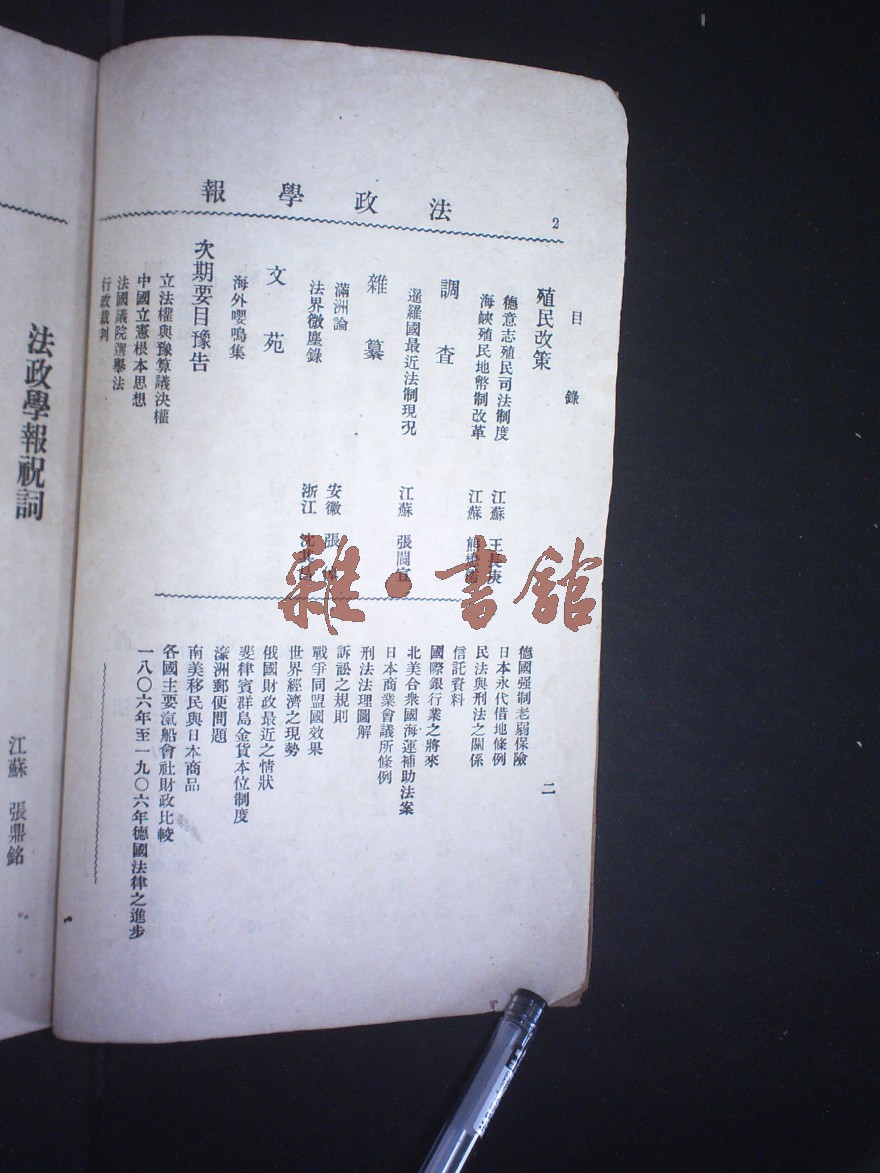 法政學報
2
目錄
二
殖民政策
德意志殖民司法制度
江蘇 王長庚
海峽殖民地幣制改革
江蘇
調查
暹羅國最近法制現況
江蘇 張闓宣
雜纂
滿洲論
安徽 張
法界微塵錄
浙江 沈
文苑
海外嚶鳴集
次期要目豫告
立法權與豫算議決權
中國立憲根本思想
法國議院選舉法
行政裁判
德國强制老弱保險
日本永代借地條例
民法與刑法之關係
信託資料
國際銀行業之將來
北美合衆國海運補助法案
日本商業會議所條例
刑法法理圖解
訴訟之規則
戰爭同盟國效果
世界經濟之現勢
俄國財政最近之情狀
斐律賓群島金貨本位制度
濠洲郵便問題
南美移民與日本商品
各國主要滊船會社財政比較
一八〇六年至一九〇六年德國法律之進步
法政學報祝詞
江蘇 張鼎銘
雜·書館